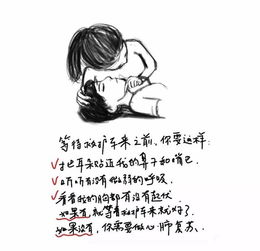 等待救护车来之前，你要这样：
✓把耳朵贴近我的鼻子和嘴巴
✓听听有没有微弱的呼吸
✓看看我的胸部有没有起伏
如果有，就等着救护车来就好了。
如果没有，你需要做心肺复苏。